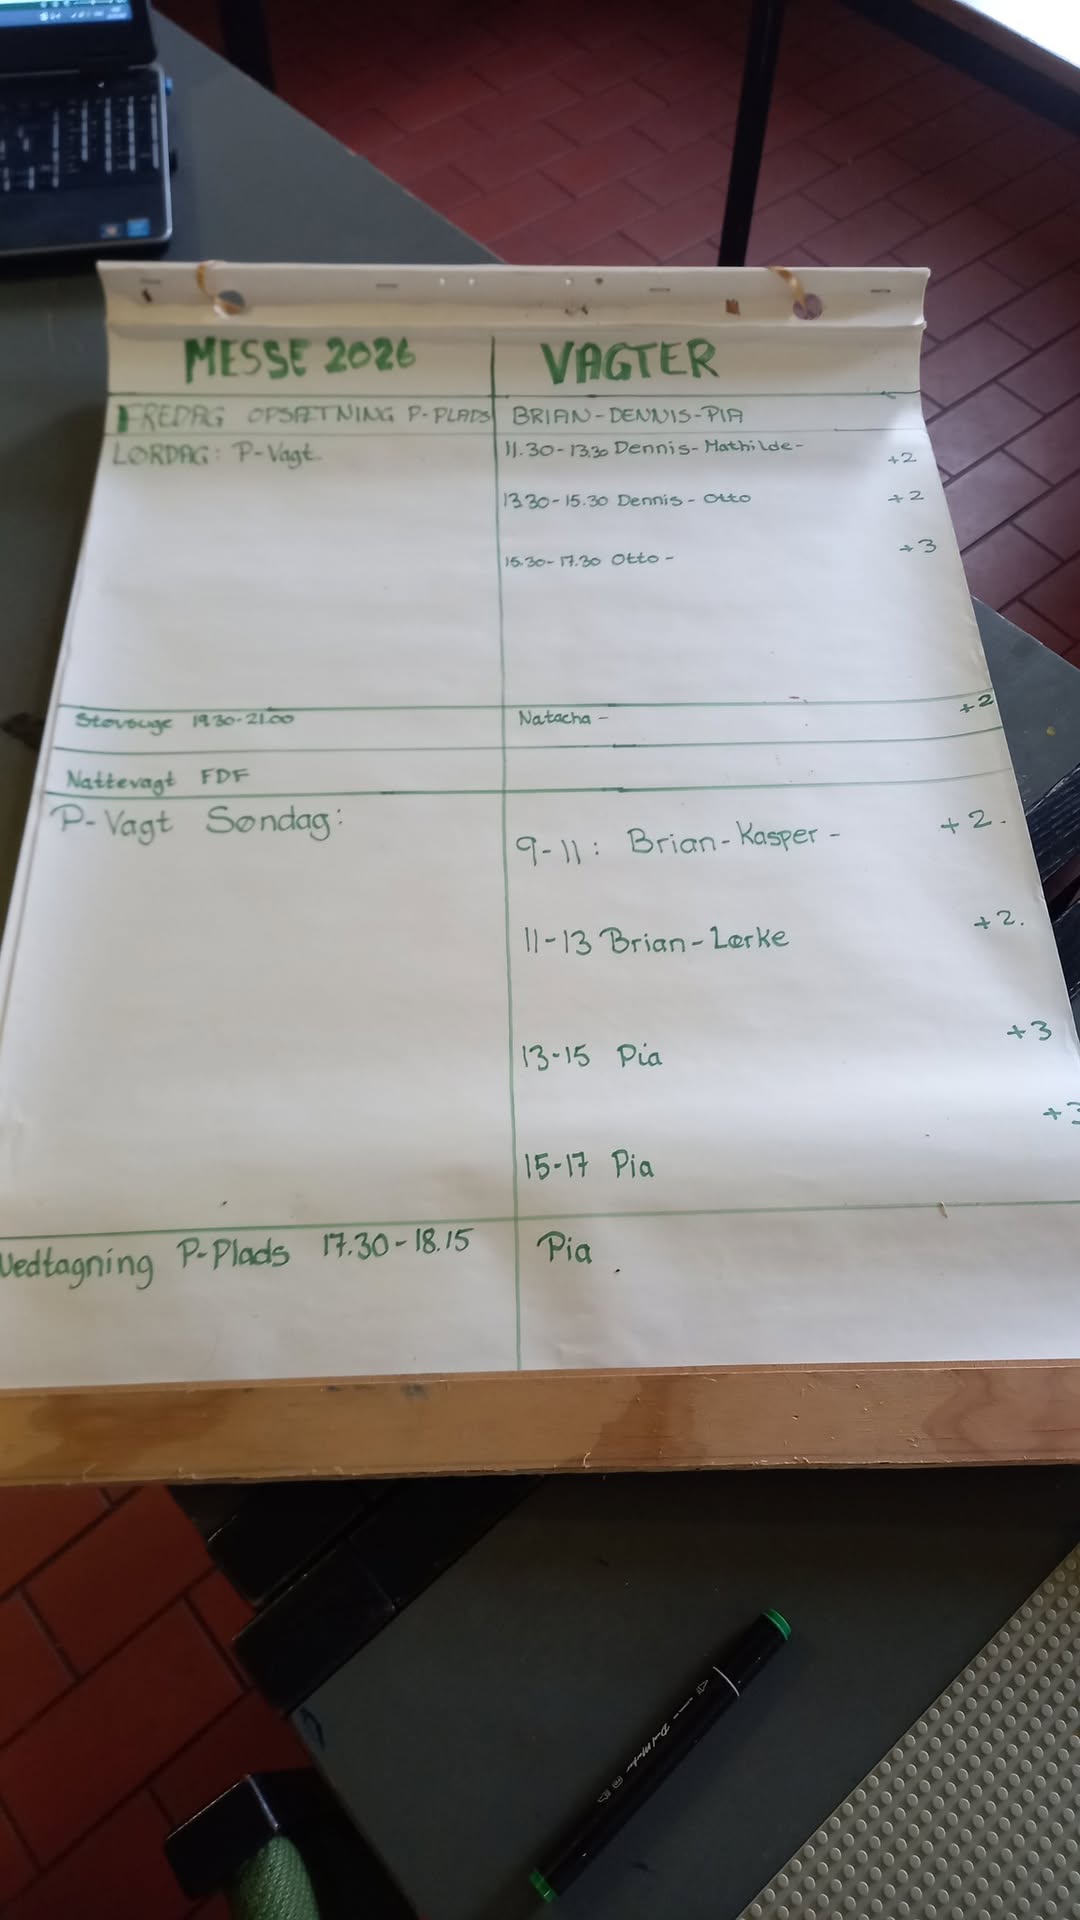 MESSE 2026 VAGTER
FREDAG OPSÆTNING P-PLADS BRIAN-DENNIS-PIA
LØRDAG: P-Vagt. 11.30-13.30 Dennis-Mathilde- +2
13.30-15.30 Dennis-Otto +2
15.30-17.30 Otto- +3
Støvsuge 19.30-21.00 Natacha- +2
Nattevagt FDF
P-Vagt Søndag:
9-11: Brian-Kasper- +2.
11-13 Brian-Lærke +2.
13-15 Pia +3
15-17 Pia +3
Nedtagning P-Plads 17.30-18.15 Pia